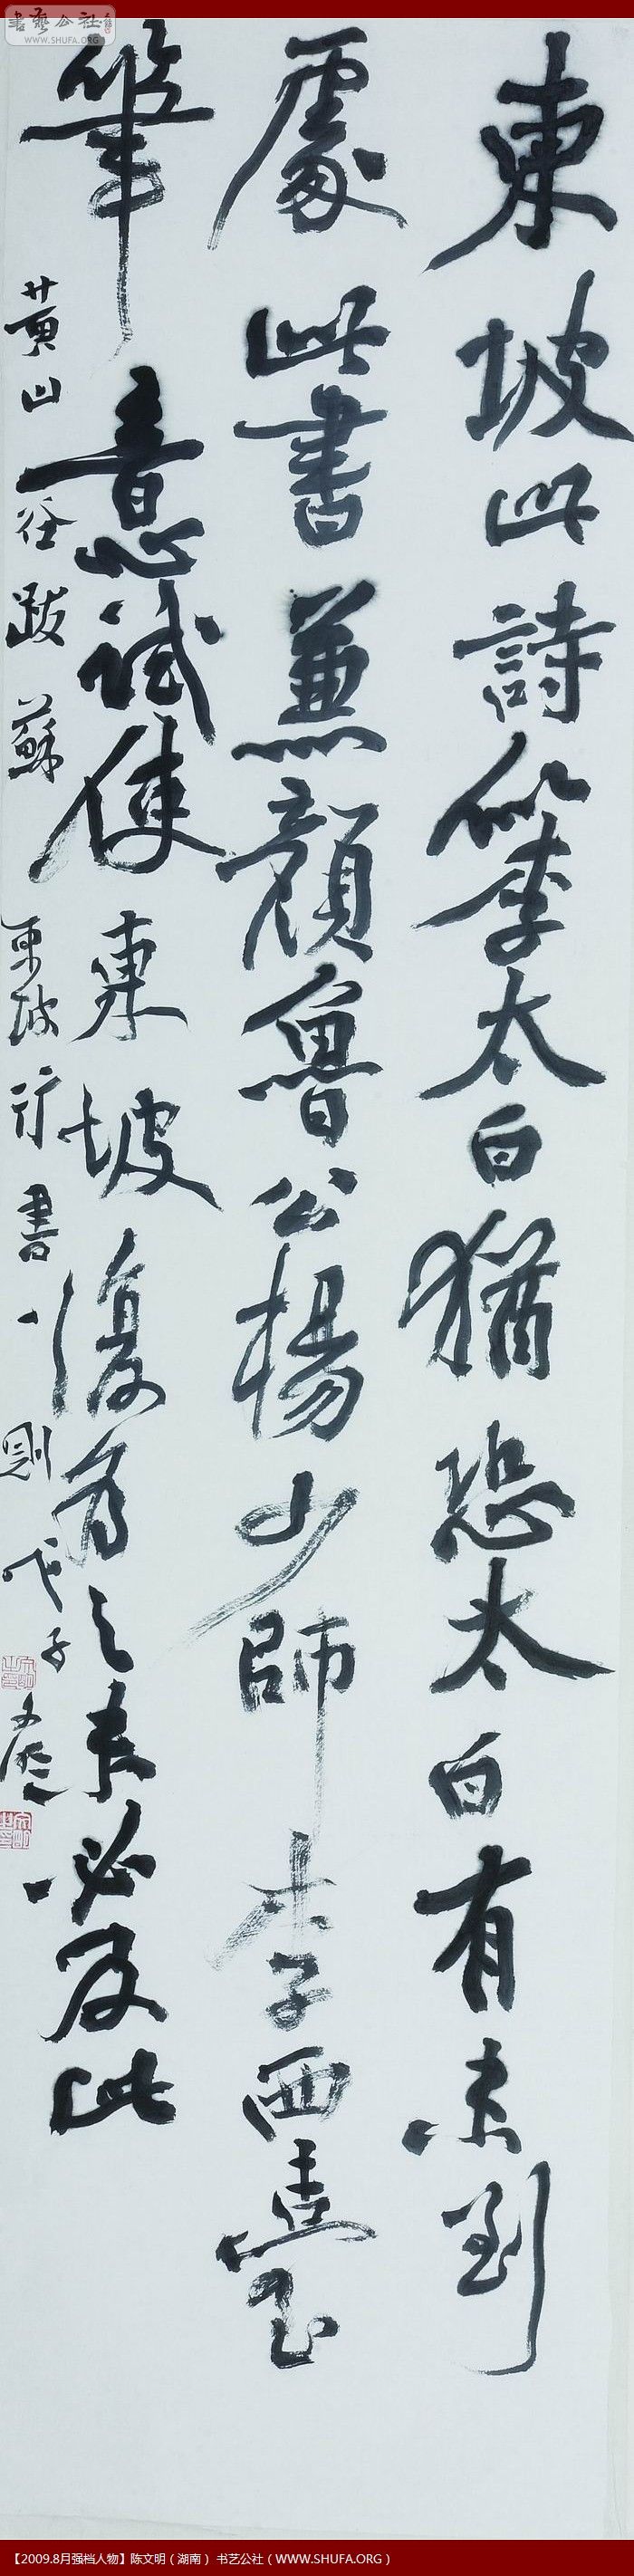 書藝公社
WWW.SHUFA.ORG
東坡此詩筆李太白猶恐太白有未到
處此書兼顏魯公楊少師李西臺
筆意試使東坡復為之未必及此
黃山谷跋蘇東坡行書一則 戊子 文明
【2009.8月强档人物】陈文明（湖南） 书艺公社（WWW.SHUFA.ORG）